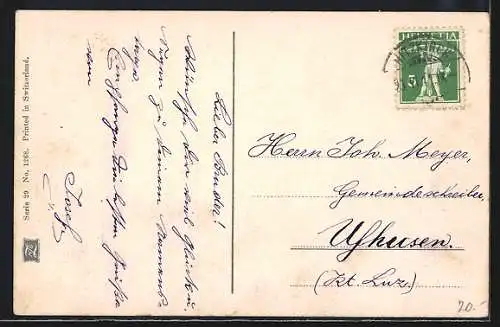 Serie 29 No. 1288. Printed in Switzerland.
Lieber Bruder!
Wünsche dir viel Glück u.
Segen zu deinem Namens-
tage.
Empfange die besten Grüsse
von
Josef
HELVETIA
5
Herrn Joh. Meyer,
Gemeindeschreiber,
Ufhusen.
(Kt. Luz.)
20.-